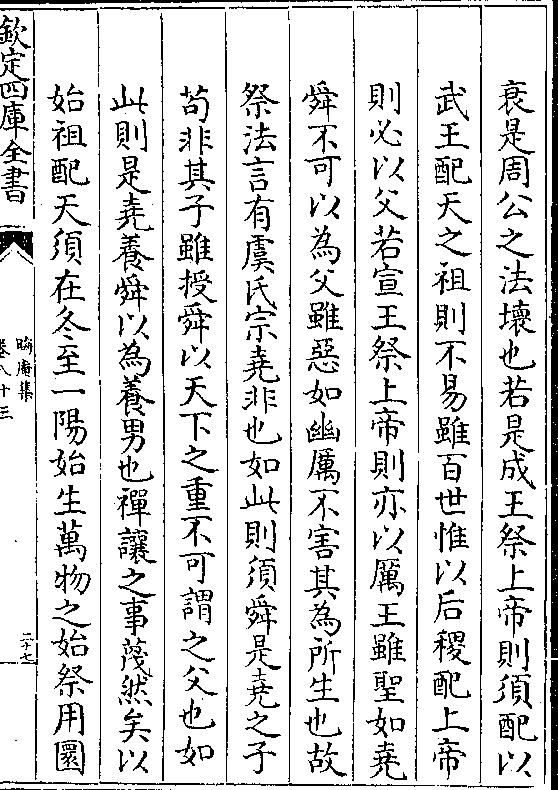 衰是周公之法壞也若是成王祭上帝則須配以
武王配天之祖則不易雖百世惟以后稷配上帝
則必以父若宣王祭上帝則亦以厲王雖聖如堯
舜不可以為父雖惡如幽厲不害其為所生也故
祭法言有虞氏宗堯非也如此則須舜是堯之子
茍非其子雖授舜以天下之重不可謂之父也如
此則是堯養舜以為養男也禪讓之事蔑然矣以
始祖配天須在冬至一陽始生萬物之始祭用圜
欽定四庫全書
晦庵集
卷八十三
二十七